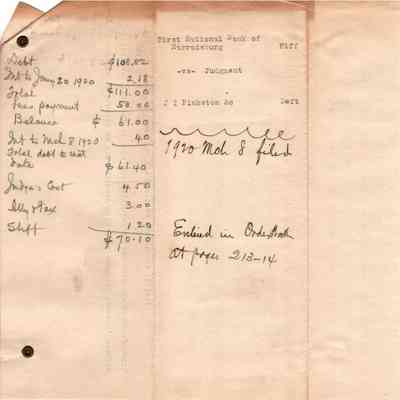 Debt $108.82
Int to Jany 20 1920 2.18
Total $111.00
Less payment 50.00
Balance $ 61.00
Int to Mch 8 1920 40
Total debt to this
date $61.40
Judge's Cost 4.50
Atty & Tax 3.00
Shff 1.20
$70.10
First National Bank of
Harrodsburg Plff
-vs- Judgment
J I Pinkston &c Deft
1920 Mch 8 filed
Entered in Order Book
at pages 213-14